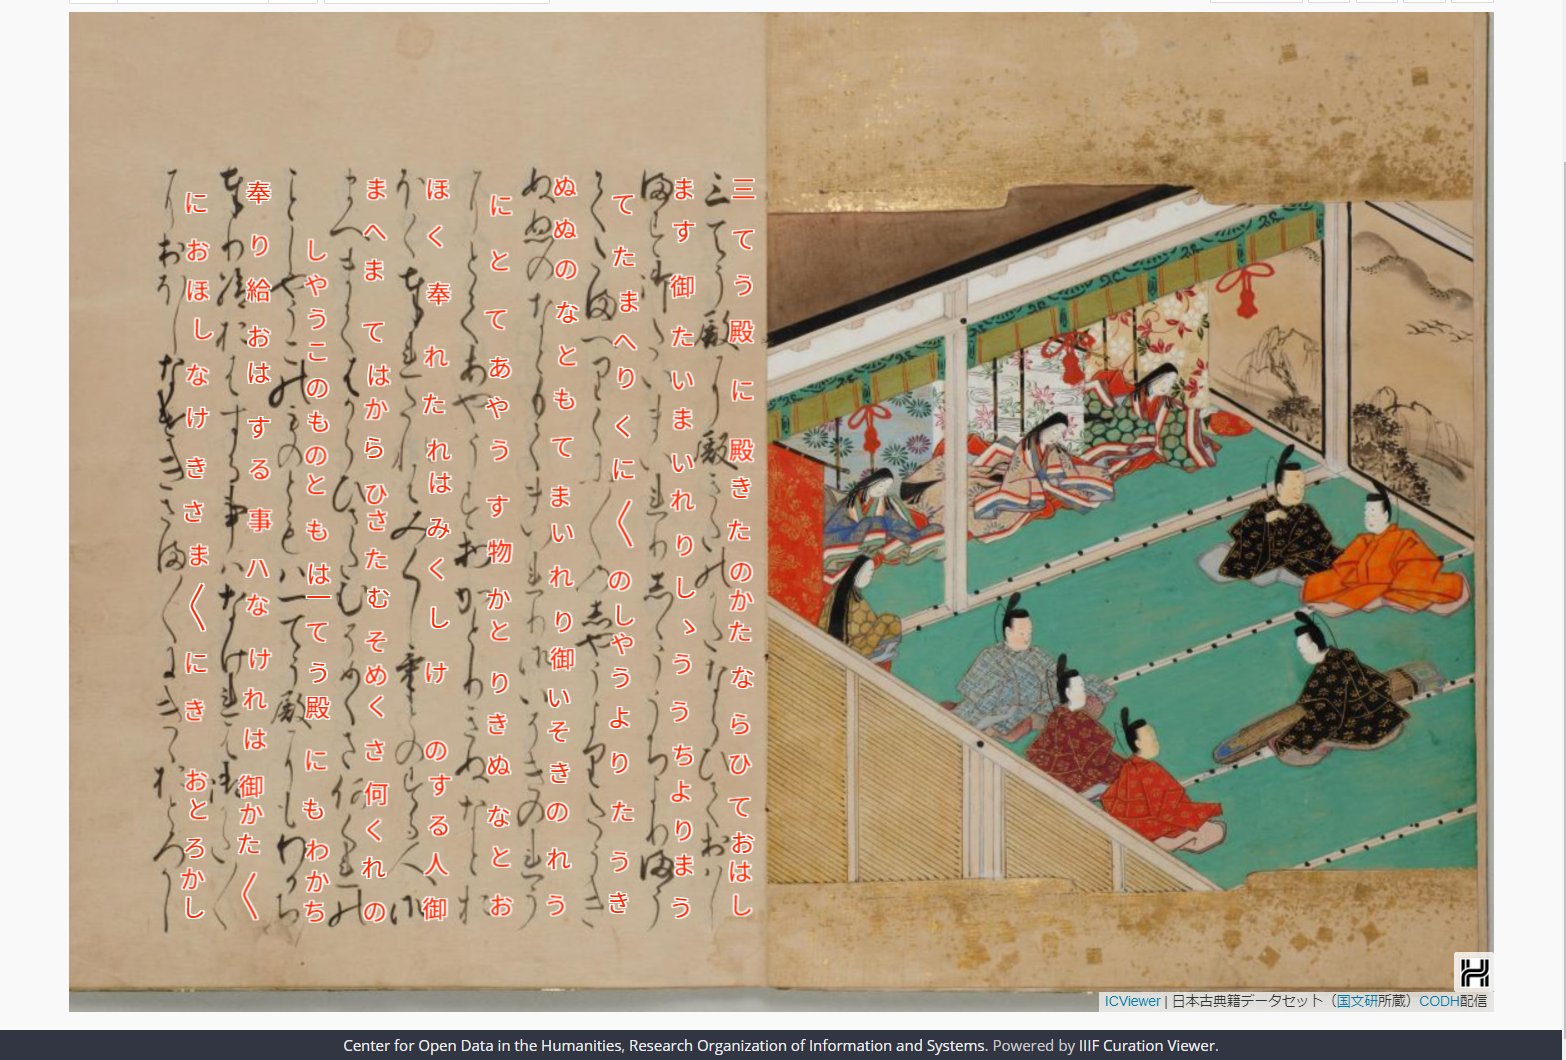 三てう殿に殿きたのかたならひておはし
ます御たいまいれりしゝううちよりまう
てたまへりくに〱のしやうよりたうき
ぬぬのなともてまいれり御いそきのれう
にとてあやうす物かとりきぬなとお
ほく奉れたれはみくしけのする人御
まへまてはからひさたむそめくさ何くれの
しやうこのものともは一てう殿にもわかち
奉り給おはする事ハなけれは御かた〱
におほしなけきさま〱にきおとろかし
ICViewer | 日本古典籍データセット（国文研所蔵）CODH配信
Center for Open Data in the Humanities, Research Organization of Information and Systems. Powered by IIIF Curation Viewer.